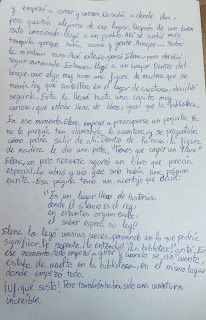 y empezó a correr y correr. No sabía a dónde iba.
pero quería alejarse de ese lugar. Después de un buen
rato corriendo llegó a un pueblo. Allí se sintió más
tranquila porque había casas y gente. Aunque... todos
la miraban raro. ¡Qué extraño! pensó Elena, pero decidió
seguir caminando. Entonces llegó a un bosque. Dentro del
bosque vio algo muy raro: una figura de madera que se
movía ¡y que
Esta la llevó hasta una cueva muy
curiosa, que estaba llena de libros, igual que la biblioteca.
En ese momento Elena empezó a preocuparse un poquito. Ya
no le parecía tan divertida la aventura, y se preguntaba
cómo podría salir de allí. Dentro de la cueva la figura
de madera le dio una pista: "Tienes que coger un libro".
Elena, un poco nerviosa agarró un libro que parecía
especial. Lo abrió y vio que solo había una página
escrita. Esa página tenía un acertijo que decía:
"En un lugar lleno de historia,
donde el silencio es el rey,
en estantes organizado,
el saber espera su ley."
Elena lo leyó varias veces, pensando en lo que podría
significar. De repente ¡lo entendió! ¡La biblioteca! gritó. En
ese momento todo empezó a girar y cuando se dio cuenta,
estaba de vuelta en la biblioteca. En el mismo lugar
donde empezó todo.
¡Uf! ¡qué susto! Pero también había sido una aventura
increíble.